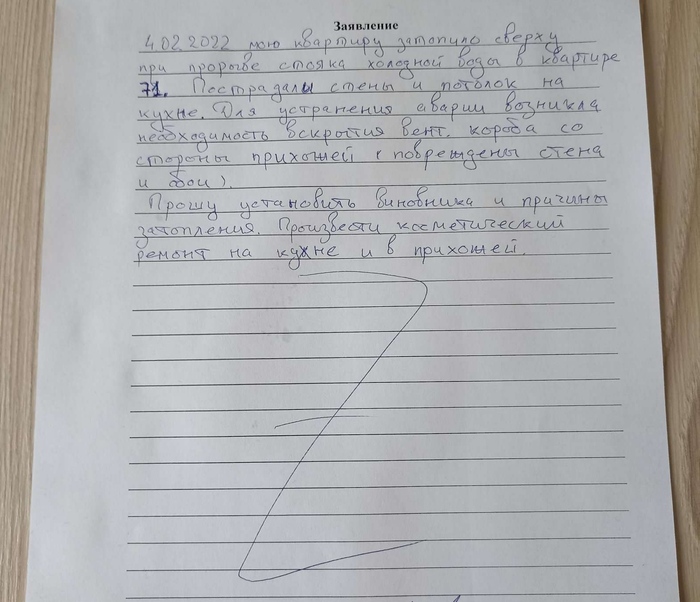 Заявление
4.02.2022 мою квартиру затопило сверху
при прорыве стояка холодной воды в квартире
71. Пострадали стены и потолок на
кухне. Для устранения аварии возникла
необходимость вскрытия вент. короба со
стороны прихожей (повреждены стена
и обои).
Прошу установить виновника и причины
затопления. Произвести косметический
ремонт на кухне и в прихожей.